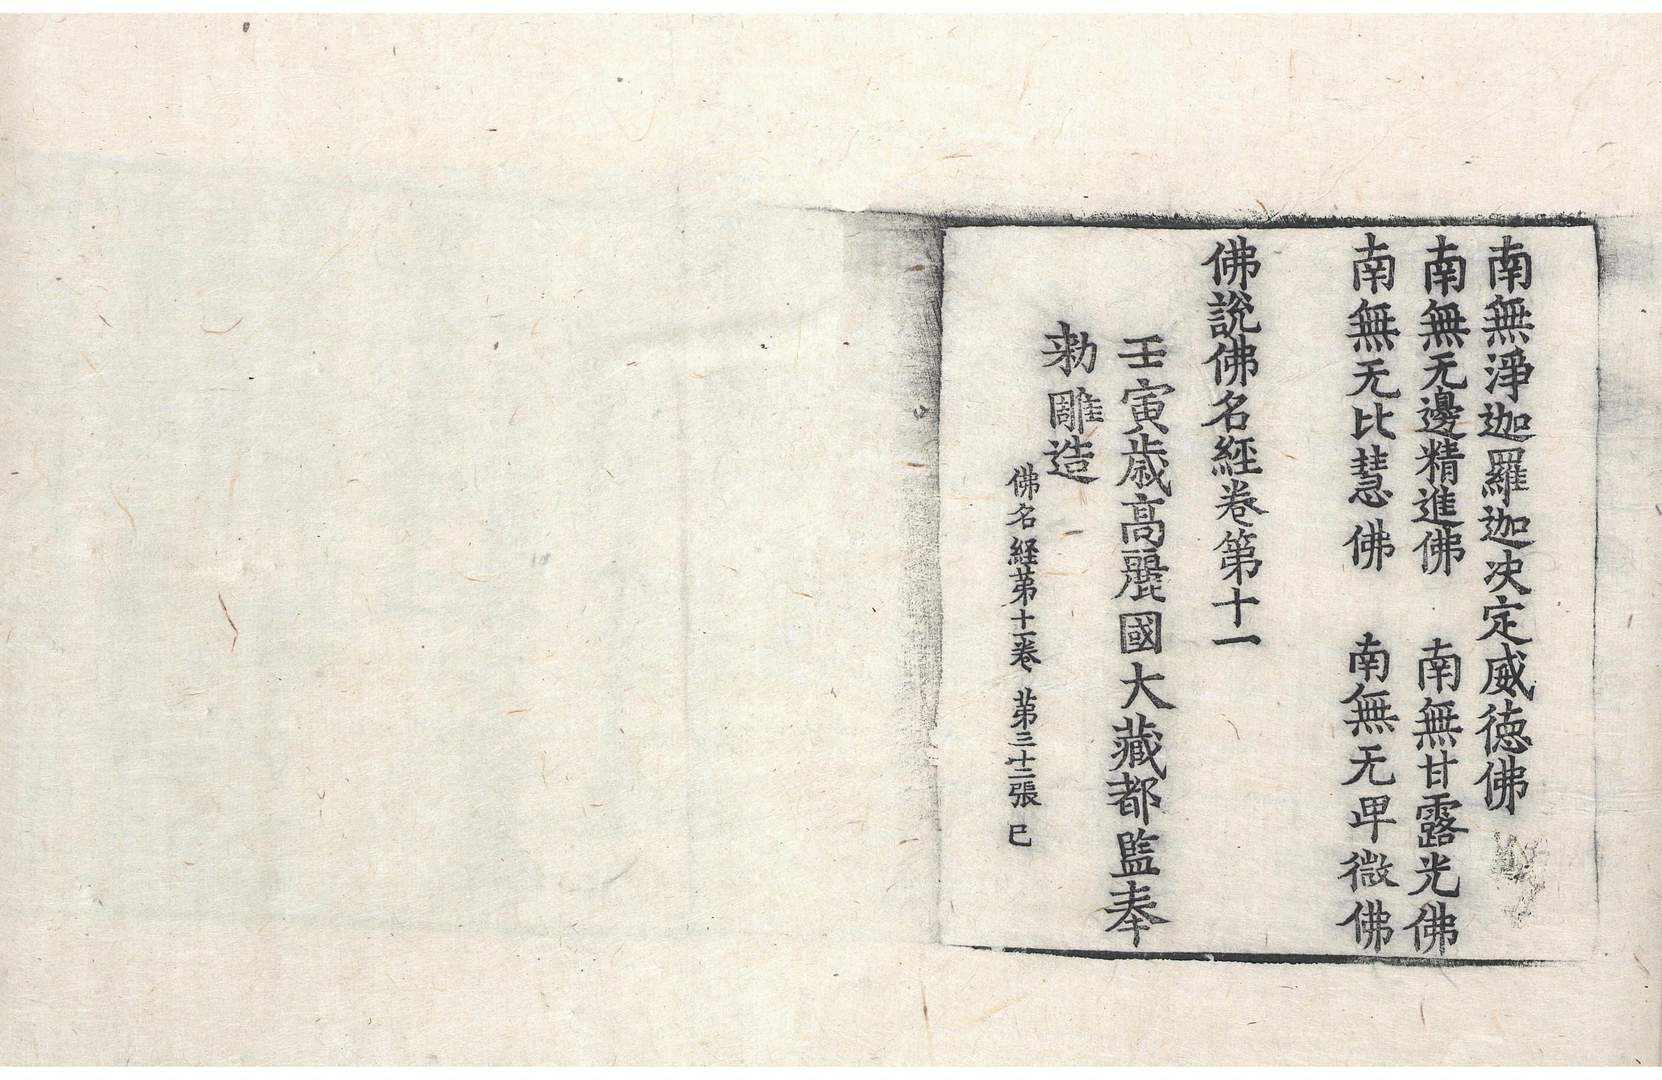 南無淨迦羅迦决定威德佛
南無无邊精進佛　南無甘露光佛
南無无比慧佛　南無无畀微佛
佛說佛名經卷第十一
壬寅歲高麗國大藏都監奉
勑雕造
佛名経苐十一卷　苐三十二張　巳